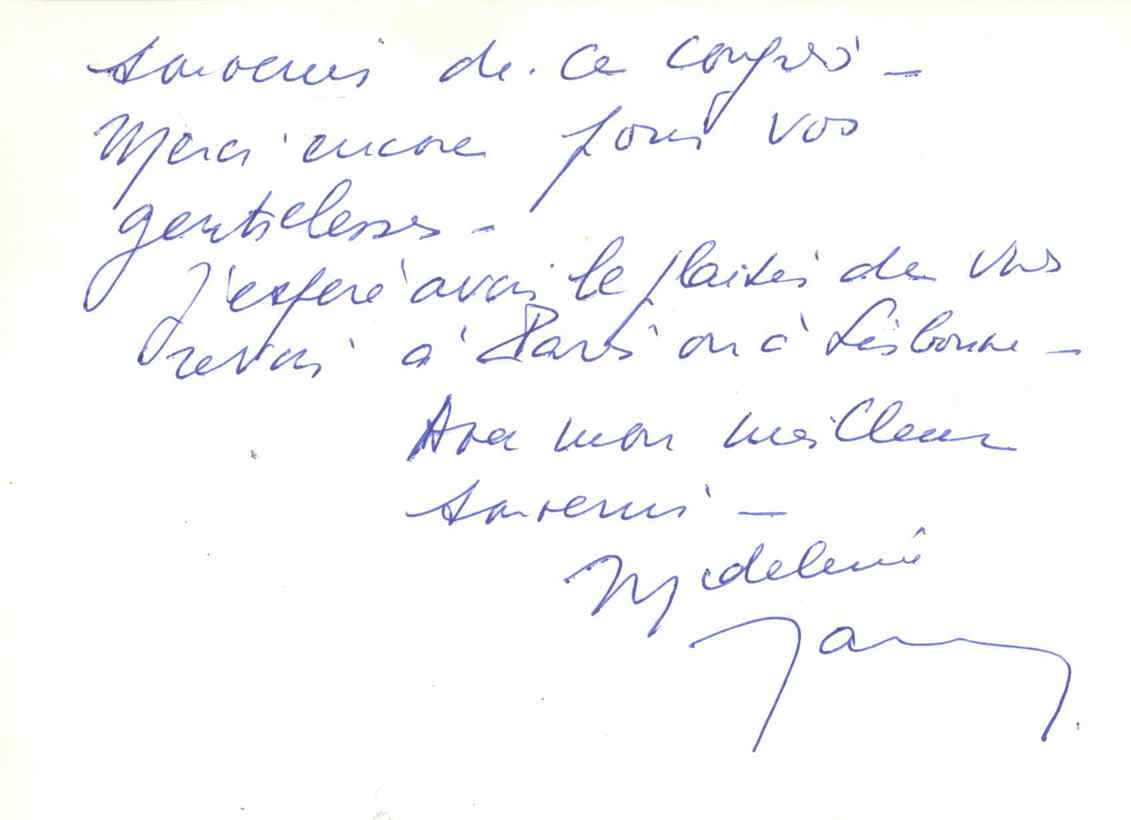 souvenir de ce congrès -
Merci encore pour vos
gentillesses -
J'espère avoir le plaisir de vous
revoir à Paris ou à Lisbonne -
Avec mon meilleur
souvenir -
Madeleine